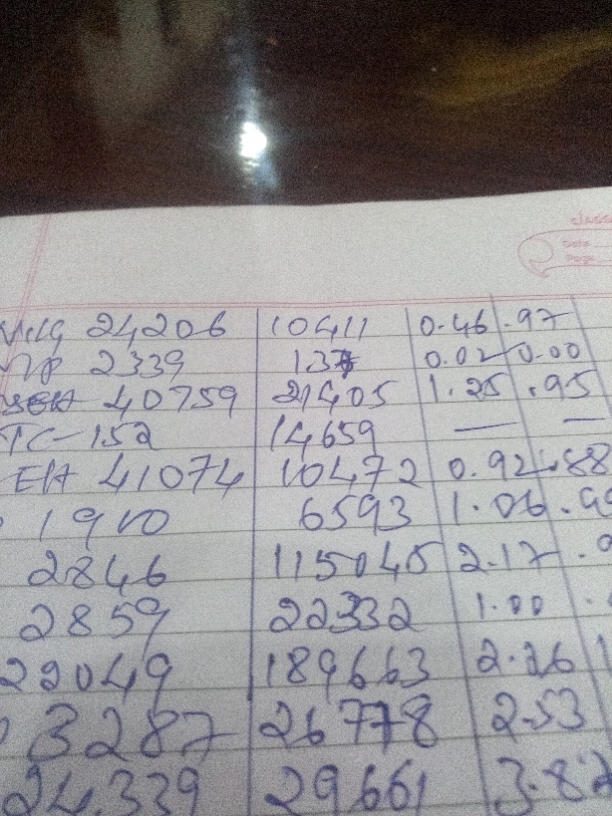 24206 10411 0.46 .97
2339 137 0.02 0.00
40759 21405 1.25 .95
TC-152 14659 — —
EH 41074 10472 0.92 .88
1910 6593 1.06
2846 115045 2.17
2859 22332 1.00
22049 189663 2.26
3287 26778 2.53
24339 29661